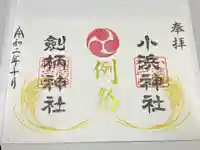 奉拝
小浜神社
例祭
剣柄神社
令和二年十月